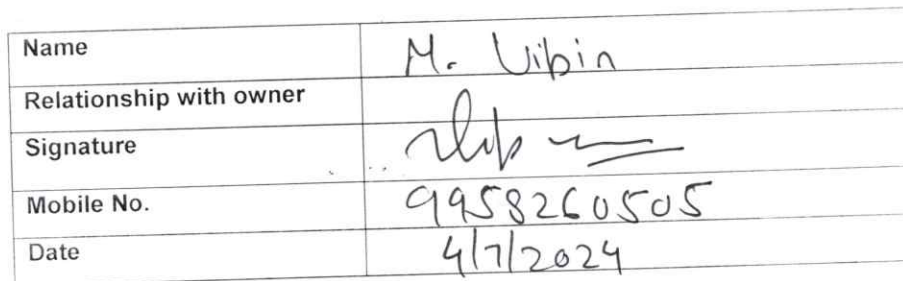 Name M. Vibin
Relationship with owner
Signature
Mobile No. 9958260505
Date 4/7/2024